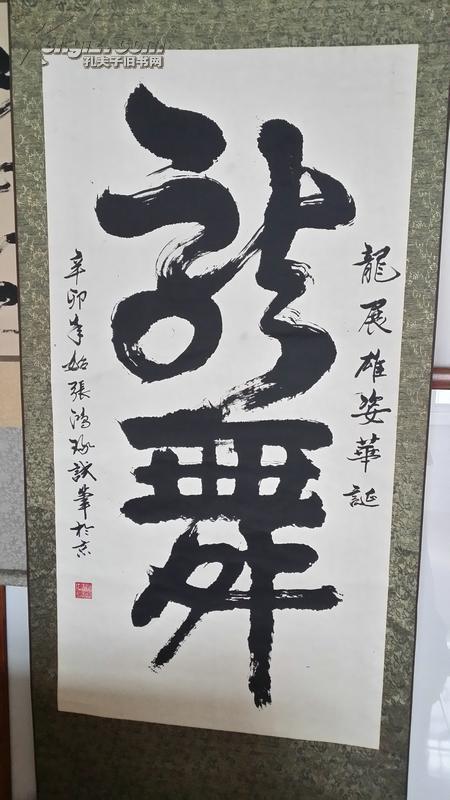 龍展雄姿華誕
龍舞
辛卯年始張鴻琢試筆於京
孔夫子旧书网